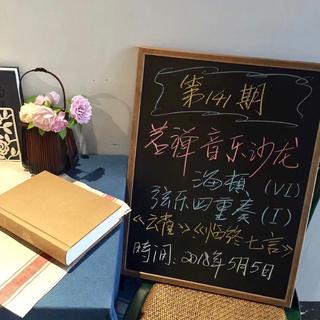 第141期
茗禅音乐沙龙
海頓(VI)
弦乐四重奏(I)
《云雀》《临终七言》
时间:2018年5月5日